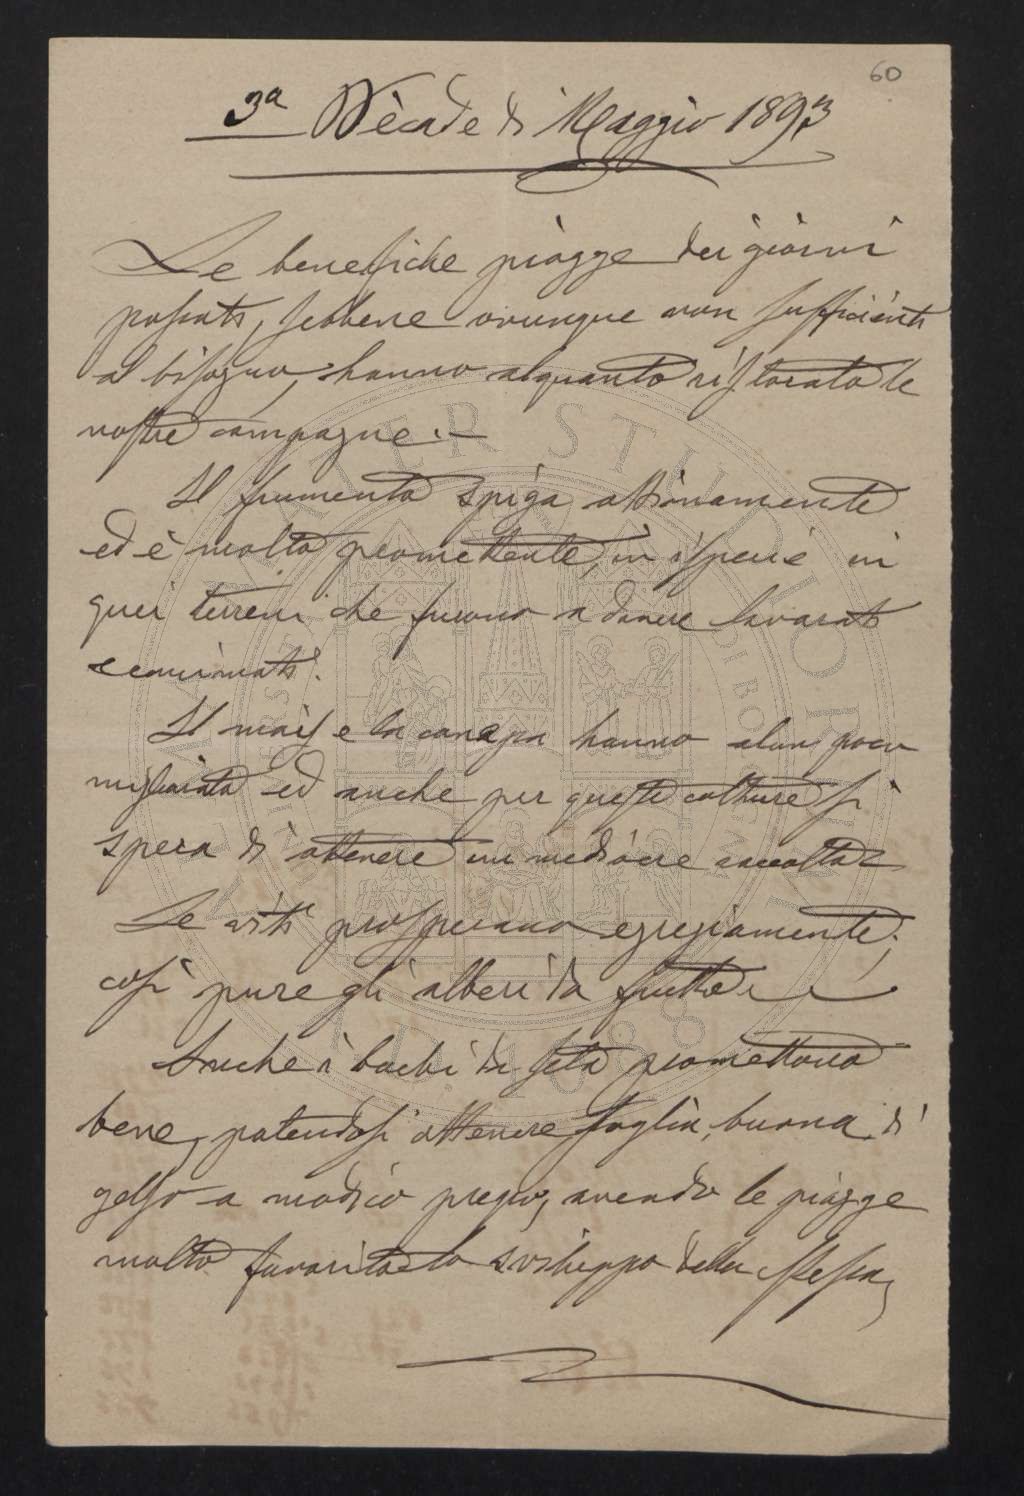 60
3ª Dècade di Maggio 1893
Le benefiche piogge dei giorni
passati, sebbene ovunque non sufficienti
al bisogno, hanno alquanto ristorato le
nostre campagne. —
Il frumento spiga ottimamente
ed è molto promettente, in ispecie in
quei terreni che furono a dovere lavorati
e concimati.
Il mais e la canapa hanno alun poco
migliorato ed anche per queste colture si
spera di ottenere un mediocre raccolto
Le viti prosperano egregiamente;
così pure gli alberi da frutto
Anche i bachi da seta promettono
bene, potendosi ottenere foglia buona di
gelso a modico prezzo, avendo le piogge
molto favorito lo sviluppo della stessa,
ALMA MATER STUDIORUM
A.D. 1088